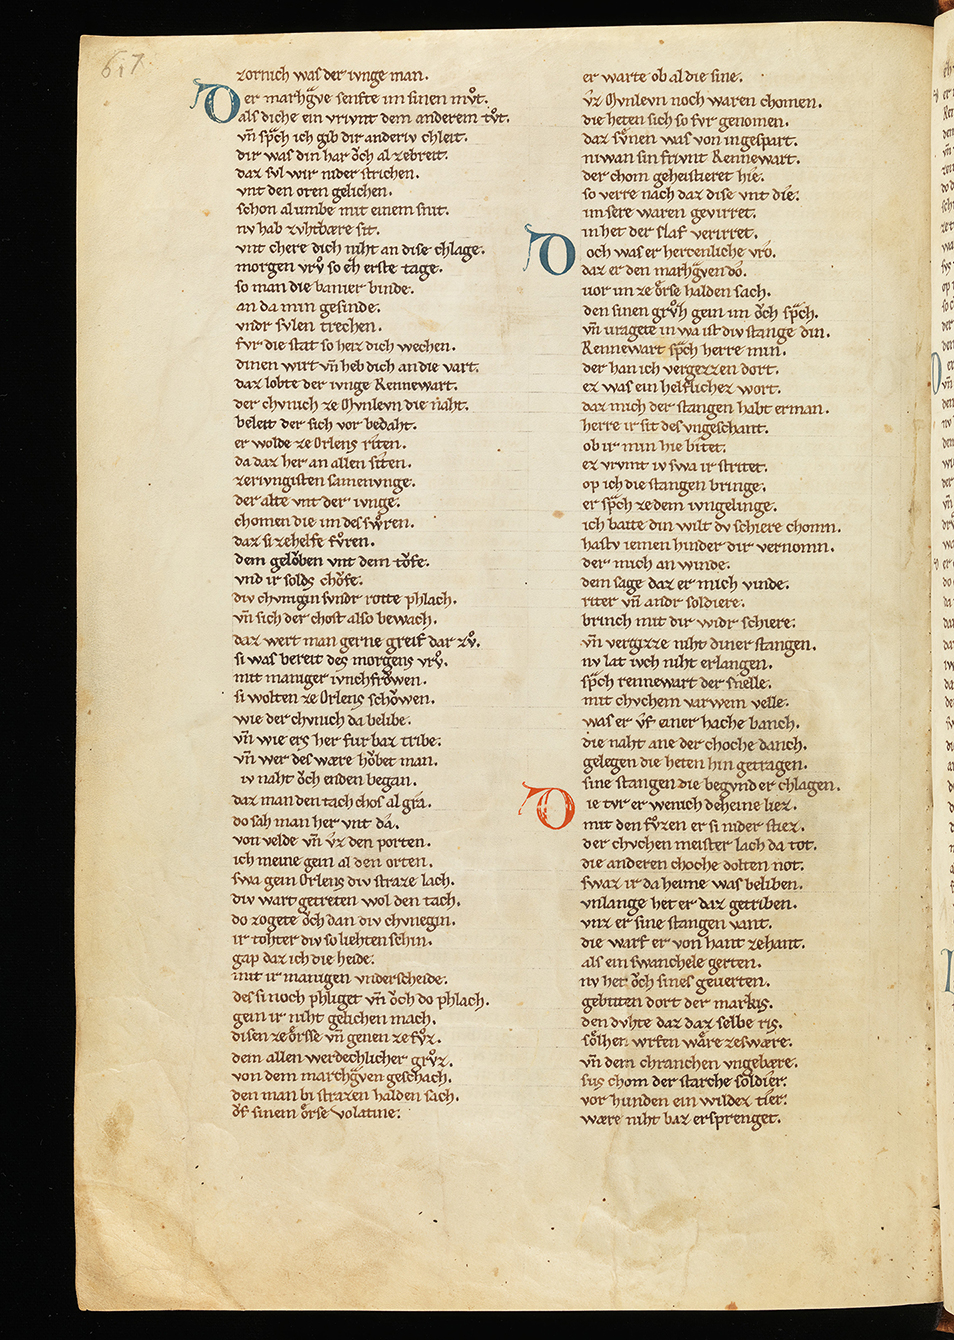 617.
zornich was der ivnge man.
Der marhg͛ve senfte im sinen mv̊t.
als diche ein vrivnt dem anderem tv̊t.
vn̄ sp͛ch ich gib dir anderiv chleit.
dir was din har o̊ch al zebreit.
daz svl wir nider strichen.
vnt den oren gelichen.
schon al umbe mit einem snit.
nv hab zvhtbære sit.
vnt chere dich niht an dise chlage.
morgen vrv̊ so eh̄ erste tage.
so man die banier binde.
an da min gesinde.
vndr svlen trechen.
fvr die stat so heiz dich wechen.
dinen wirt vn̄ heb dich an die vart.
daz lobte der ivnge Rennewart.
der chvnich ze Mvnlevn die naht.
beleit der sich vor bedaht.
er wolde ze Orlens riten.
da daz her an allen siten.
zerivngisten samenvnge.
der alte vnt der ivnge.
chomen die im des swv̊ren.
daz si zehelfe fv̊ren.
dem gelo̊ben vnt dem to̊fe.
vnd ir solds cho̊fe.
div chvnigin svndr rotte phlach.
vn̄ sich der chost also bewach.
daz wert man gerne greif dar zv̊.
si was bereit des morgens vrv̊.
mit maniger ivnchfro̊wen.
si wolten ze Orlens scho̊wen.
wie der chvnich da belibe.
vn̄ wie ers her fur baz tribe.
vn̄ wer des wære ho̊bet man.
iv naht o̊ch enden began.
daz man den tach chos al gra.
do sah man her vnt da.
von velde vn̄ v̊z den porten.
ich meine gein al den orten.
swa gein Orlens div straze lach.
div wart getreten wol den tach.
do zogete o̊ch dan div chvnegin.
ir tohter div so liehten schin.
gap daz ich die heide.
mit ir manigen vnderscheide.
des si noch phliget vn̄ o̊ch do phlach.
gein ir niht gelichen mach.
disen ze o̊rsse vn̄ genen ze fv̊z.
dem allen werdechlicher grv̊z.
von dem marchg͛ven geschach.
den man bi strazen halden sach.
v̊f sinem o̊rse volatine.
er warte ob al die sine.
v̊z Mvnlevn noch waren chomen.
die heten sich so fvr genomen.
daz sv̊nen was von in gespart.
niwan sin frivnt Rennewart.
der chom geheistieret hie.
so verre nach daz dise vnt die.
im sere waren gevirret.
in het der slaf verirret.
Doch was er hercenliche vro.
daz er den marhg͛ven do.
uor im ze o̊rse halden sach.
den sinen grv̊h gein im o̊ch sp͛ch.
vn̄ uragete in wa ist div stange din.
Rennewart sp͛ch herre min.
der han ich vergezzen dort.
ez was ein helflichez wort.
daz mich der stangen habt erman.
herre ir sit des vngeschant.
ob ir min hie bitet.
ez vrvmt iv swa ir stritet.
op ich die stangen bringe.
er sp͛ch ze dem ivngelinge.
ich baite din wilt dv schiere chomn.
hastv iemen hinder dir vernomn.
der mich an winde.
dem sage daz er mich vinde.
riter vn̄ andr soldiere.
brinch mit dir widr schiere.
vn̄ vergizze niht diner stangen.
nv lat ivch niht erlangen.
sp͛ch rennewart der snelle.
mit chvchem varwem velle.
was er v̊f einer hache banch.
die naht ane der choche danch.
gelegen die heten hin getragen.
sine stangen die begvnd er chlagen.
Die tvr er wenich deheine liez.
mit den fv̊zen er si nider stiez.
der chvchen meister lach da tot.
die anderen choche dolten not.
swaz ir da heime was beliben.
vnlange het er daz getriben.
vnz er sine stangen vant.
die warf er von hant zehant.
als ein swanchele gerten.
nv her o̊ch sines geuerten.
gebiten dort der markis.
den dvhte daz daz selbe ris.
so̊lher wrfen wa̍re ze swære.
vn̄ dem chranchen vngebære.
sus chom der starche so̊ldier.
vor hunden ein wildez tier.
wære niht baz ersprenget.